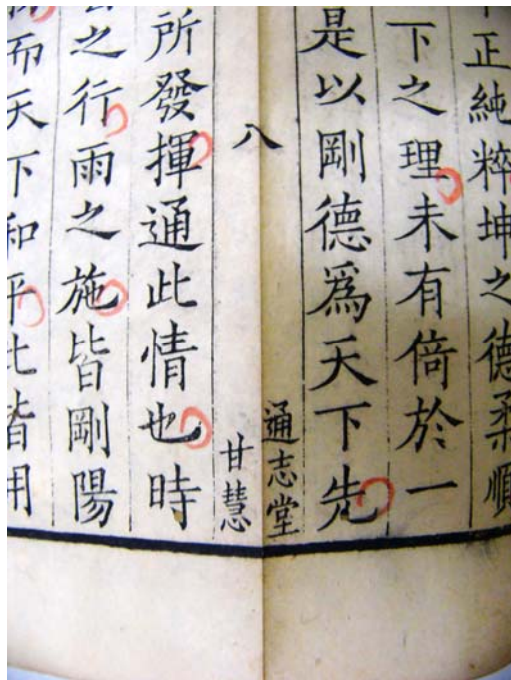 正純粹坤之德柔順
下之理未有倚於一
是以剛德爲天下先
八
通志堂
甘慧
所發揮通此情也時
之行雨之施皆剛陽
而天下和平此皆用